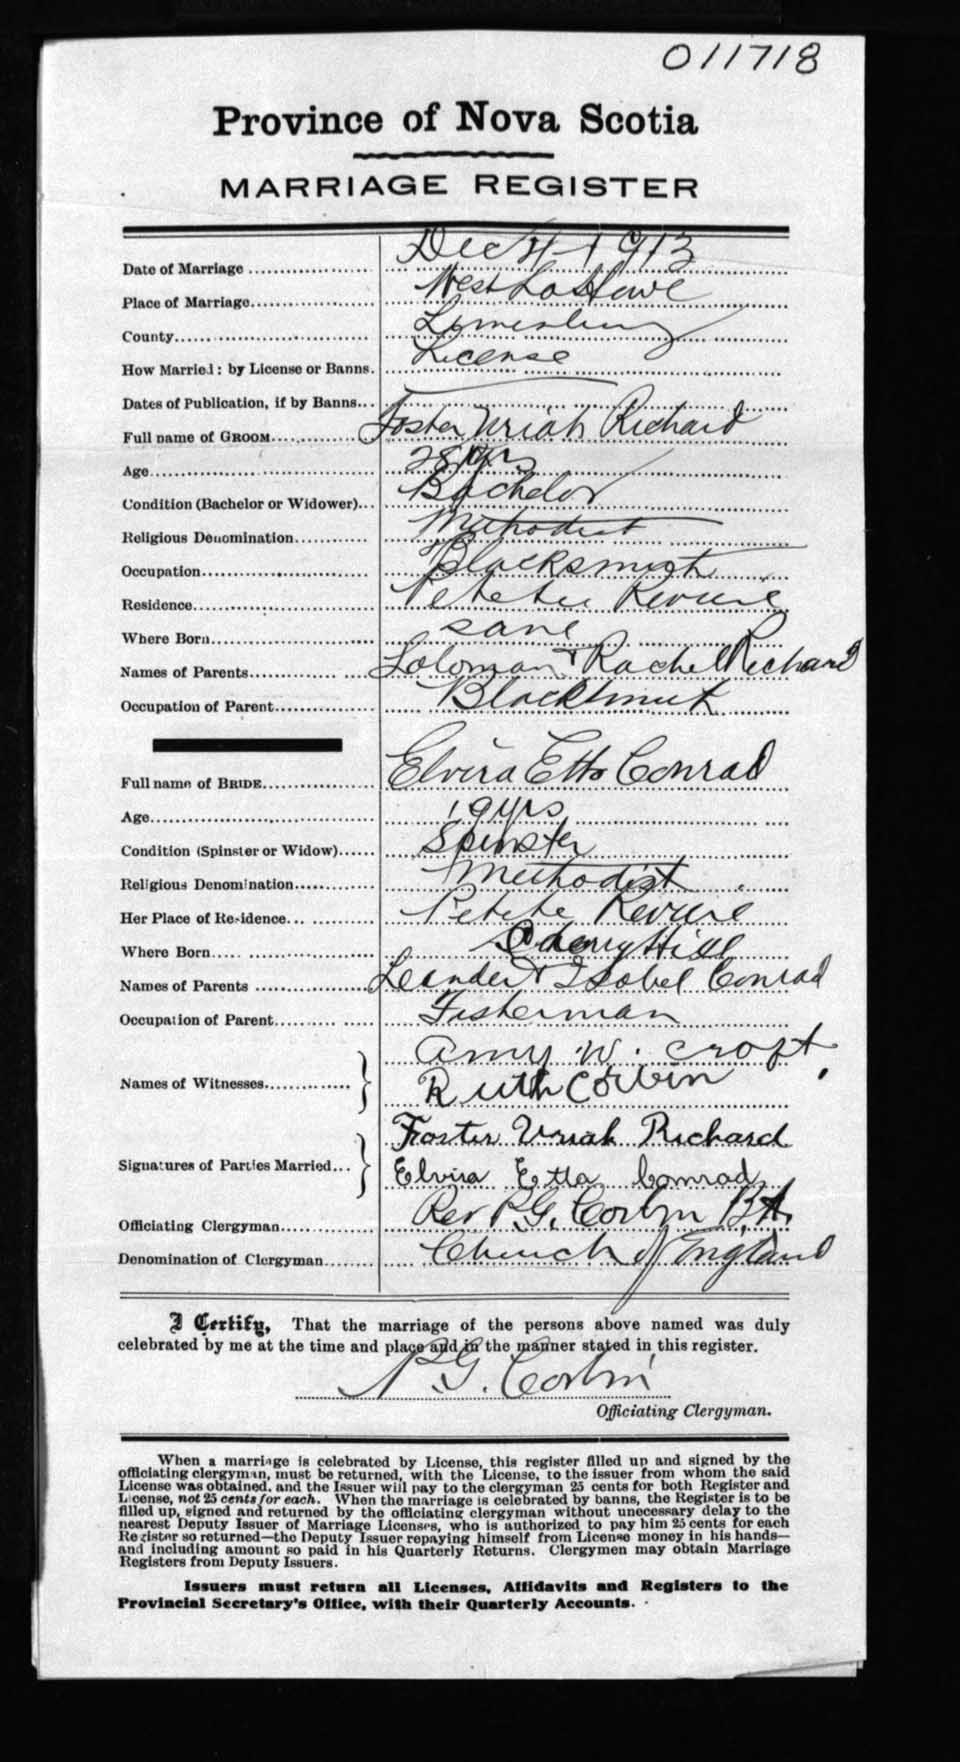 011718
Province of Nova Scotia
MARRIAGE REGISTER
Date of Marriage Dec 4 1913
Place of Marriage West LaHave
County Lunenburg
How Married: by License or Banns. License
Dates of Publication, if by Banns
Full name of GROOM Foster Uriah Richard
Age 28 yrs
Condition (Bachelor or Widower) Bachelor
Religious Denomination Methodist
Occupation Blacksmith
Residence Petete Reviere
Where Born same
Names of Parents Soloman & Rachel Richard
Occupation of Parent Blacksmith
Full name of BRIDE Elvira Etta Conrad
Age 19 yrs
Condition (Spinster or Widow) Spinster
Religious Denomination Methodist
Her Place of Residence Petete Reviere
Where Born Cherry Hill
Names of Parents Leander & Isabel Conrad
Occupation of Parent Fisherman
Names of Witnesses Amy W. Croft
Ruth Corbin
Signatures of Parties Married Foster Uriah Richard
Elvira Etta Conrad
Officiating Clergyman Rev P.G. Corbin B.A.
Denomination of Clergyman Church of England
I Certify, That the marriage of the persons above named was duly
celebrated by me at the time and place and in the manner stated in this register.
P.G. Corbin
Officiating Clergyman.
When a marriage is celebrated by License, this register filled up and signed by the
officiating clergyman, must be returned, with the License, to the issuer from whom the said
License was obtained, and the Issuer will pay to the clergyman 25 cents for both Register and
License, not 25 cents for each. When the marriage is celebrated by banns, the Register is to be
filled up, signed and returned by the officiating clergyman without unecessary delay to the
nearest Deputy Issuer of Marriage Licenses, who is authorized to pay him 25 cents for each
Register so returned—the Deputy Issuer repaying himself from License money in his hands—
and including amount so paid in his Quarterly Returns. Clergymen may obtain Marriage
Registers from Deputy Issuers.
Issuers must return all Licenses, Affidavits and Registers to the
Provincial Secretary's Office, with their Quarterly Accounts.